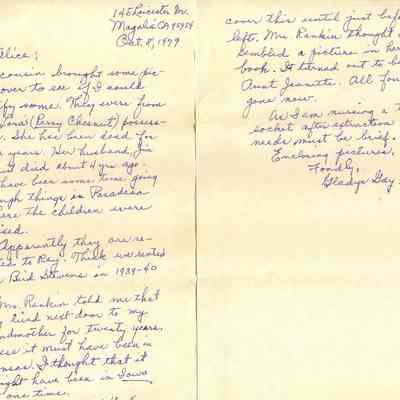 145 Leicester Dr.
Magalia CA 95954
Oct. 8, 1979
Alice;
cousin brought some pic-
over to see if I could
fy some. They were from
(Perry Chesnut) possess-
. She has been dead for
years. Her husband, Jim
died about 4 yrs ago.
have been some time going
ough things in Pasadena
ere the children were
ised.
Apparently they are re-
ted to Ray. Think we rented
Bird Stevens in 1939-40
Mrs. Rankin told me that
lived next door to my
ndmother for twenty years.
ess it must have been in
nsas. I thought that it
ight have been in Iowa
one time.
cover this until just befo
left. Mrs. Rankin thought
sembled a picture in her
book. It turned out to be
Aunt Jeanette. All four
gone now.
As I am nursing a
socket after extraction
needs must be brief.
Enclosing pictures.
Fondly,
Gladys Gay